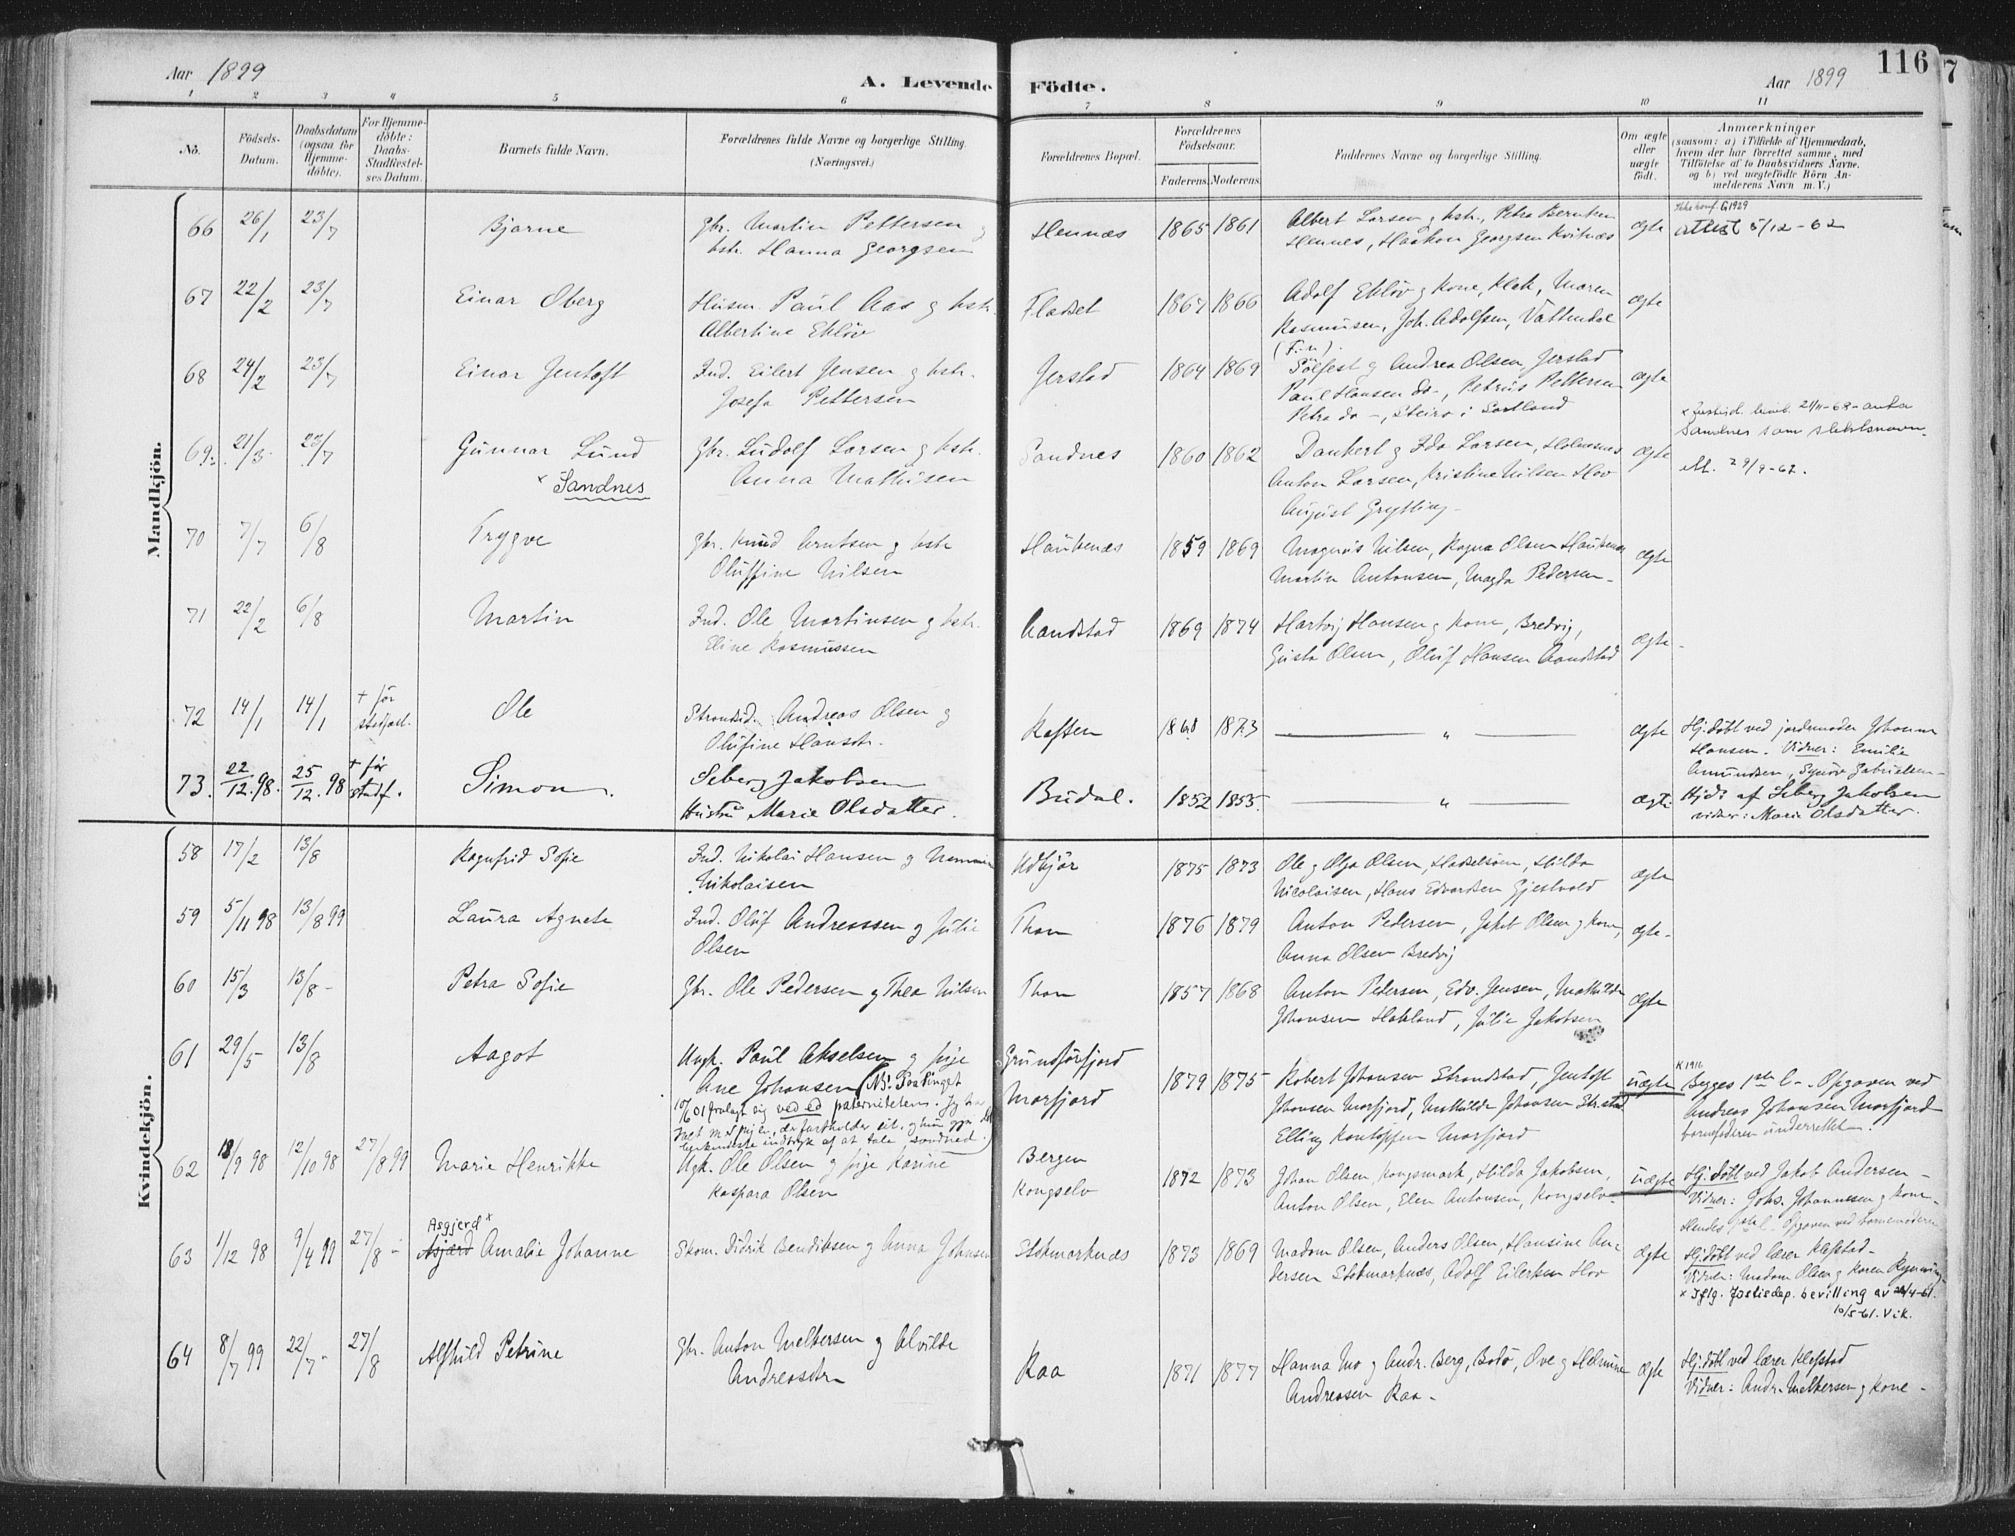 Aar 1899
A. Levende Födte.
Aar 1899
116
1 2 3 4 5 6 7 8 9 10 11
No.
Födsels-Datum.
Daabsdatum (ogsaa for Hjemme-döbte).
For Hjemme-döbte: Daabs-Stadfæstel-ses Datum.
Barnets fulde Navn.
Forældrenes fulde Navne og borgerlige Stilling. (Næringsvei.)
Forældrenes Bopæl.
Forældrenes Födselsaar.
Faderens. Moderens.
Faddernes Navne og borgerlige Stilling.
Om ægte eller uægte födt.
Anmærkninger
(saasom: a) i Tilfælde af Hjemmedaab,
hvem der har forrettet samme, med
Tilföielse af to Daabsvidners Navne,
og b) ved uægtefödte Börn An-
melderens Navn m.V.)
Mandkjön.
66 26/1 23/7 Bjarne Gbr. Martin Pettersen og hstr. Hanna Georgsen Hennæs 1865 1861 Albert Larsen g hstr., Petra Berntsen Hennes, Haakon Georgsen Kvitnæs ægte attest 5/12-62
67 22/2 23/7 Einar Oberg Husm. Paul Aas og hstr. Albertine Eklöv Fladset 1867 1866 Adolf Eklöv g kone, Maren Rasmusen, Joh. Adolfsen, Vattendal ægte
68 24/2 23/7 Einar Jentoft Ind. Eilert Jensen g hstr. Josefa Pettersen Jerstad 1864 1869 Sölfest g Andrea Olsen, Jerstad Paul Hansen do-, Petrus Pettersen Petra do-, Steiro i Sortland ægte
69 21/3 23/7 Gunnar Lund x Sandnes Gbr. Ludolf Larsen g hstr. Anna Mathisen Sandnes 1860 1862 Dankert g Ida Larsen, Holmsnes Anton Larsen, Kristine Nilsen Hov August Grytting- ægte x Justisd. bevil. 21/11-68- anta Sandnes som slektsnavn. Att. 29/9-62.
70 7/7 6/8 Trygve Gbr. Knud Arntsen g hstr Oluffine Nilsen Haukenæs 1859 1869 Magnus Nilsen, Ragna Olsen Haukenæs Martin Antonsen, Magda Pedersen- ægte
71 22/2 6/8 Martin Ind. Ole Martinsen g hstr. Eline Rasmussen Aandstad 1869 1874 Hartvig Hansen g kone, Bredvig, Gusta Olsen, Oluf Hansen Aandstad ægte-
72 14/1 14/1 + för stadfæst. Ole Strandsid. Andreas Olsen g Olufine Hansdtr. Raften 1868 1873 — " — ægte Hj. döbt ved jordemoder Johanna Hansen. Vidner: Emilie Amundsen, Synöve Gabrielsen-
73. 22/12.98. 25/12.98 + för stadf. Simon. Seberg Jakobsen Hustru Marie Olsdatter. Budal. 1852 1855. — " — ægte Hjdt af Seberg Jakobsen vidner: Marie Olsdatter.
Kvindekjön.
58 17/2 13/8 Ragnfrid Sofie Ind. Nikolai Hansen g Nikolaisen Udkjör 1875 1873 Ole g Olga Olsen, Hadselsöen, Hilda Nicolaisen, Hans Edvardsen Gjestvold ægte
59 5/11 98 13/8 99 Laura Agnete Ind. Oluf Andreassen g Julie Olsen Thom 1876 1879 Anton Pedersen, Jakob Olsen g kone, Anna Olsen Bredvig ægte-
60 15/3 13/8- Petra Sofie Gbr. Ole Pedersen g Thea Nilsen Thom 1857 1868 Anton Pedersen, Edv. Jensen, Mathilde Johansen Hokland, Julie Jakobsen ægte
61 29/5 13/8 Aagot Ungk. Paul Akselsen g pige Ane Johansen (NB! Paa tinget 10/6 01 fralagt sig ved ed paterniteten. Grunsförfjord Morfjord 1879 1875 Robert Johansen Strandstad, Jentoft Johansen Morfjord, Mathilde Johansen Str.stad Elling Kantoffen Morfjord uægte K 1916 Begges 1ste L-. Opgaven ved Andreas Johansen Morfjord barnefaderen underrettet.
62 18/9 98 12/10 98 27/8 99 Marie Henrikke Ugk. Ole Olsen g pige Karine Kaspara Olsen Bergen Kongselv 1872 1873 Johan Olsen, Kongsmark, Hilda Jakobsen, Anton Olsen, Elen Antonsen, Kongselv- uægte Hj. döbt ved Jakob Andersen- Vidner: Johs. Johannesen g kone- Hendes Opgaven ved barnemoderen
63 1/12 98 9/4 99 27/8 - Asgjerd x Asjærd Amalie Johanne Skom. Didrik Bendiksen g Anna Johnsen Stokmarknæs 1873 1869 Madam Olsen, Anders Olsen, Hansine Andersen Stokmarknæs, Adolf Eilertsen Hov ægte Hj. döbt ved lærer Klefstad- Vidner: Madam Olsen g Karen Rynning- x Iflg. Justisdep. bevilling av 24/4-61. 10/5-61. Vik.
64 8/7 99 22/7- 27/8 Alfhild Petrine Gbr. Anton Melkersen g Alvilde Andreasdtr Raa 1871 1877 Hanna Mo g Andr. Berg, Bodö, Ove g Helmine Andreasen Raa- ægte Hj. döbt ved lærer Klefstad Vidner: Andr. Melkersen g kone-